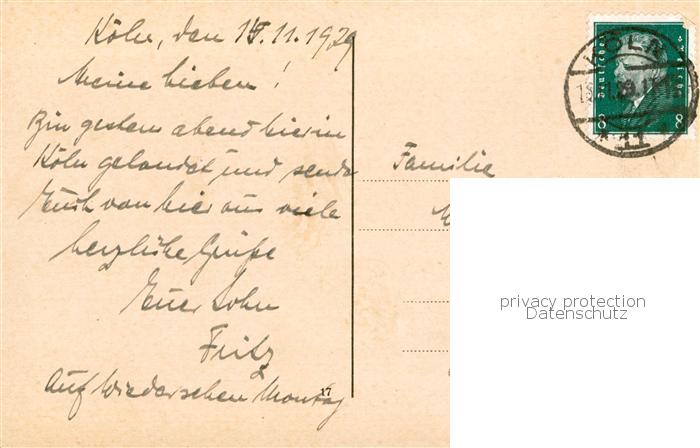 Köln, den 15.11.1929
Meine Lieben!
Bin gestern abend hier in
Köln gelandet und sende
Euch von hier aus viele
herzliche Grüße
Euer Sohn
Fritz
Auf Wiedersehen Montag
17
Familie
Deutsches Reich
8 8
KÖLN
11
privacy protection
Datenschutz